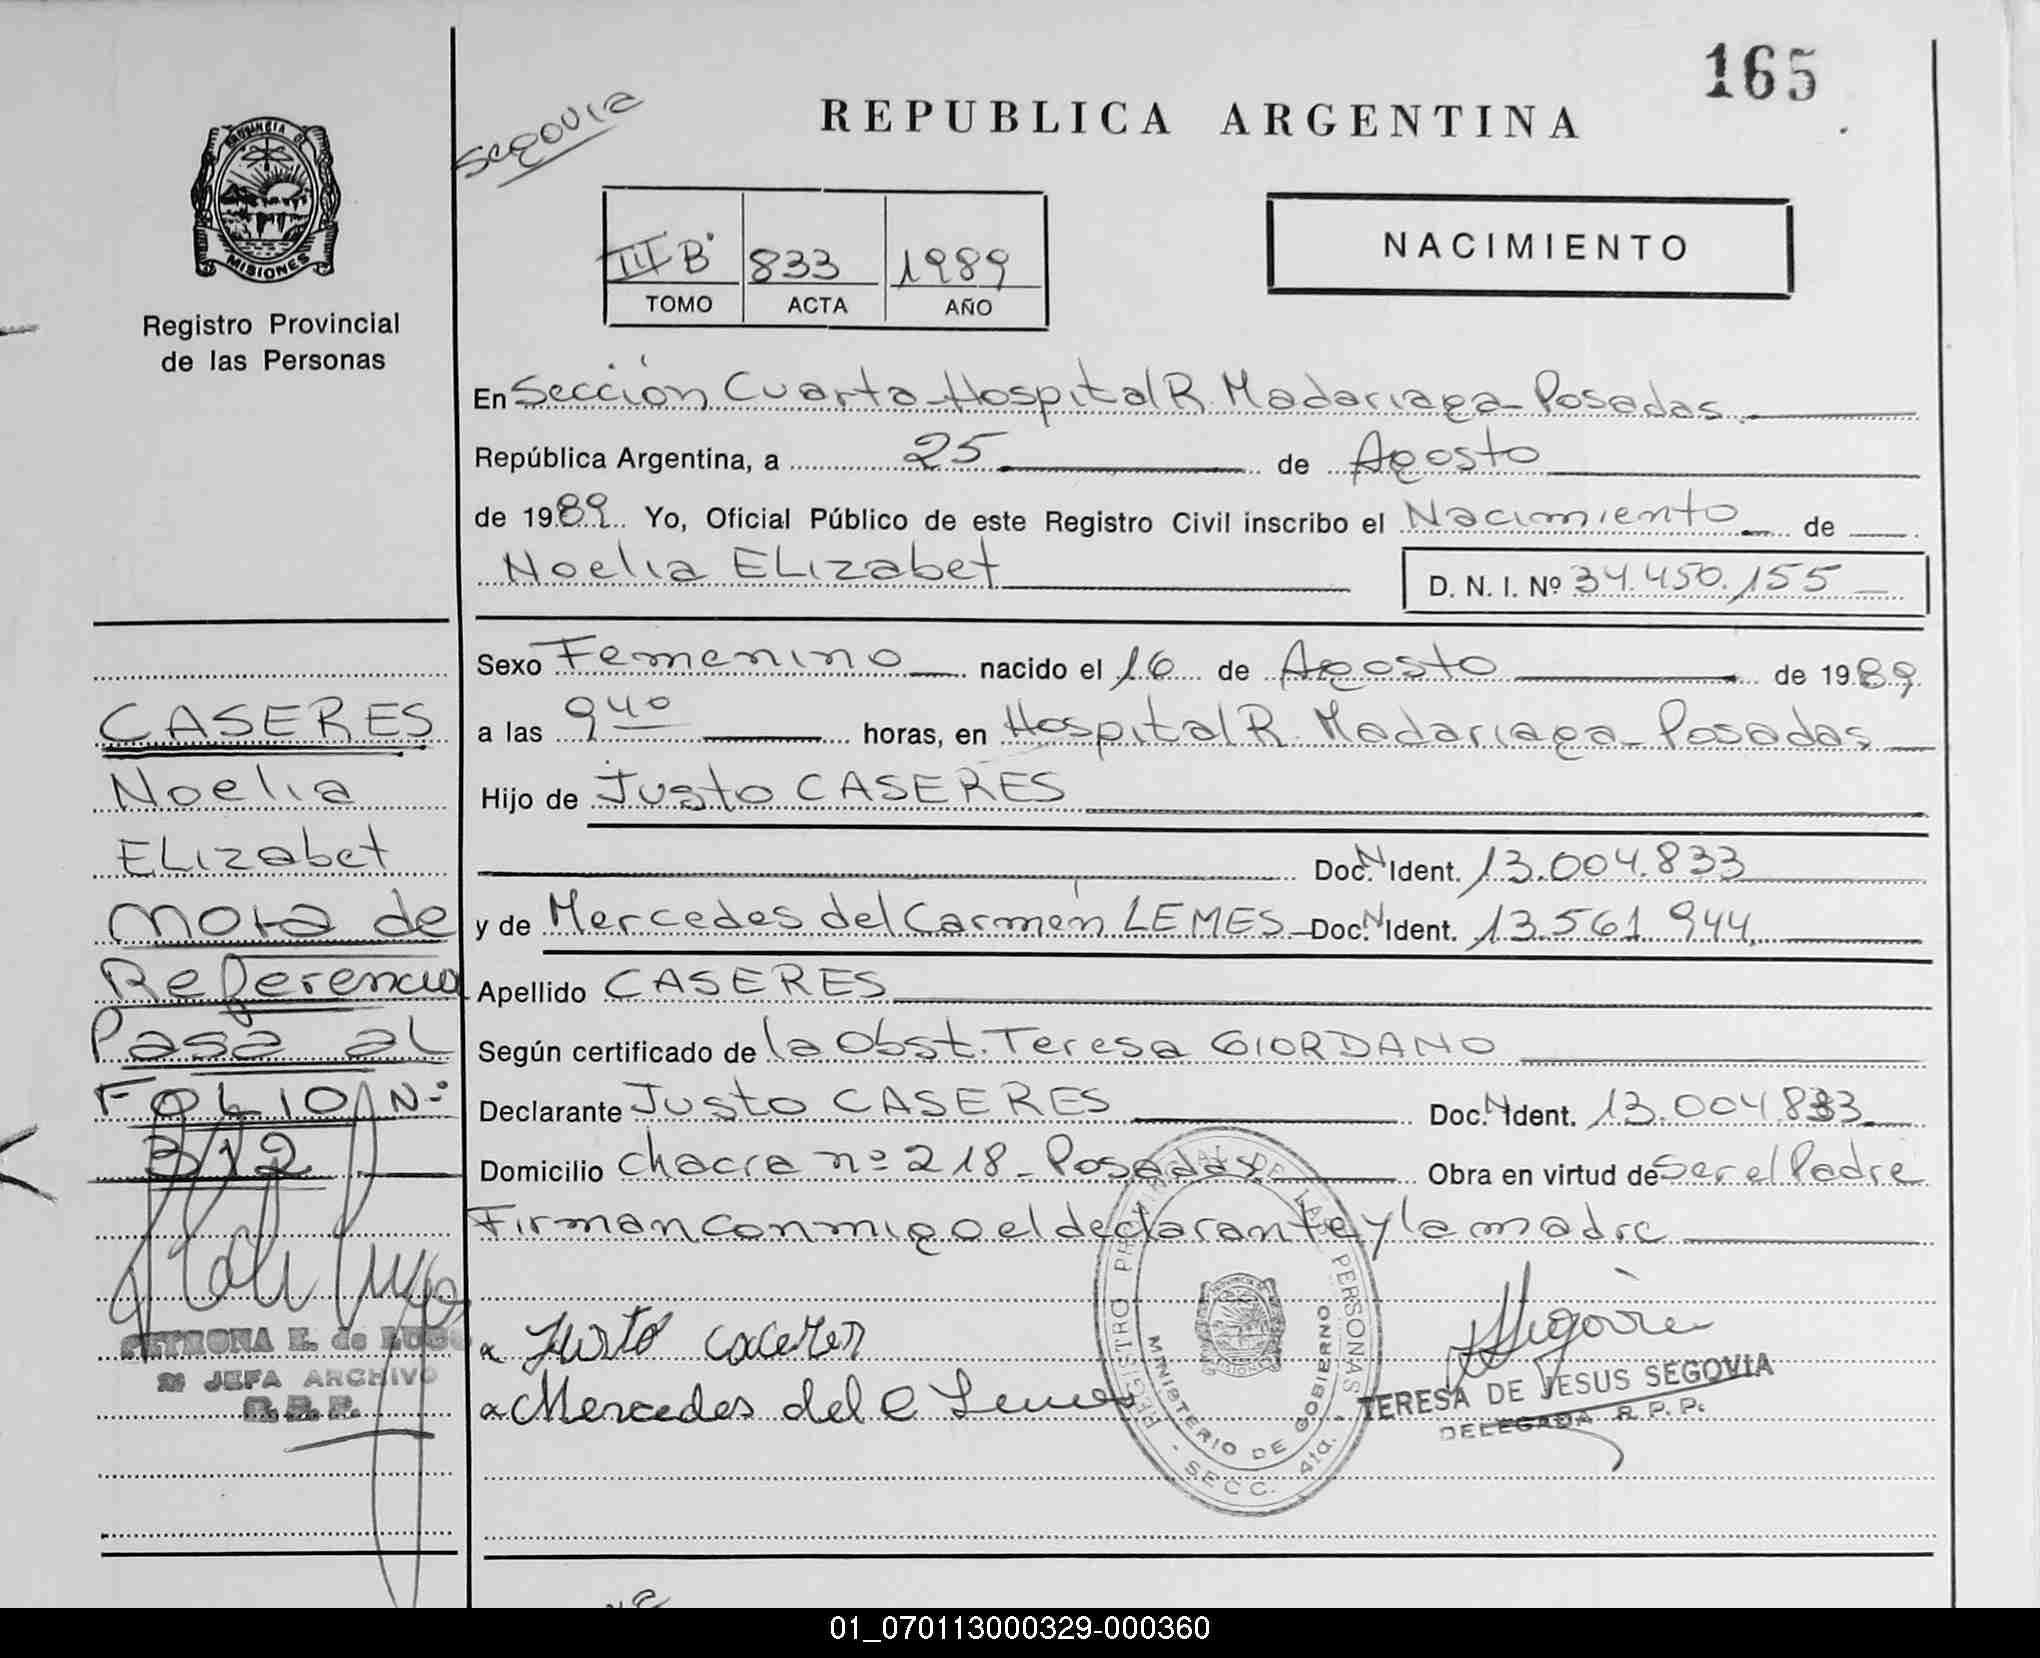 165
Segovia
REPUBLICA ARGENTINA
PROVINCIA DE
MISIONES
Registro Provincial
de las Personas
III B
833
1989
TOMO
ACTA
AÑO
NACIMIENTO
En Sección Cuarta Hospital R. Madariaga - Posadas
República Argentina, a 25 de Agosto
de 1989 Yo, Oficial Público de este Registro Civil inscribo el Nacimiento de
Noelia ELizabet
D. N. I. Nº 34.450.155
Sexo Femenino nacido el 16 de Agosto de 1989
a las 9 40 horas, en Hospital R. Madariaga - Posadas
Hijo de Justo CASERES
Doc. N Ident. 13.004.833
y de Mercedes del Carmen LEMES - Doc. N Ident. 13.561.944
Apellido CASERES
Según certificado de la Obst. Teresa GIORDANO
Declarante Justo CASERES Doc. N Ident. 13.004.833
Domicilio chacra nº 218 - Posadas Obra en virtud de Ser el Padre
Firman conmigo el declarante y la madre
CASERES
Noelia
ELizabet
Nota de
Referencia
Pasa al
FOLIO Nº
312
PETRONA E. de LUGO
2ª JEFA ARCHIVO
R. P. P.
Justo caceres
Mercedes del C Lemes
REGISTRO PROVINCIAL DE LAS PERSONAS
MINISTERIO DE GOBIERNO
- SECC. 4ta. -
Segovia
TERESA DE JESUS SEGOVIA
DELEGADA R. P. P.
01_070113000329-000360